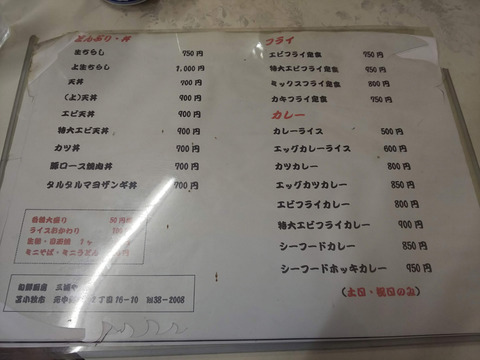 どんぶり・丼
生ちらし 750円
上生ちらし 1,000円
天丼 700円
(上)天丼 900円
エビ天丼 900円
特大エビ天丼 900円
カツ丼 700円
豚ロース焼肉丼 700円
タルタルマヨザンギ丼 700円
大盛り 50円
ライスおかわり
ミニそば・ミニうどん 円
苫小牧市 丁目16-10 ℡38-2008
フライ
エビフライ定食 750円
特大エビフライ定食 950円
ミックスフライ定食 800円
カキフライ定食 750円
カレー
カレーライス 500円
エッグカレーライス 600円
カツカレー 800円
エッグカツカレー 850円
エビフライカレー 800円
特大エビフライカレー 900円
シーフードカレー 850円
シーフードホッキカレー 950円
(土日・祝日のみ)